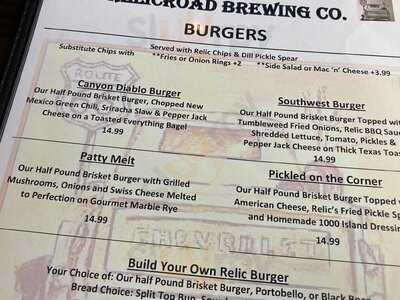 BREWING CO.
BURGERS
Served with Relic Chips & Dill Pickle Spear
Substitute Chips with **Fries or Onion Rings +2 **Side Salad or Mac 'n' Cheese +3.99
ROUTE
Canyon Diablo Burger
Our Half Pound Brisket Burger, Chopped New
Mexico Green Chili, Sriracha Slaw & Pepper Jack
Cheese on a Toasted Everything Bagel
14.99
Southwest Burger
Our Half Pound Brisket Burger Topped with
Tumbleweed Fried Onions, Relic BBQ Sauc
Shredded Lettuce, Tomato, Pickles &
Pepper Jack Cheese on Thick Texas Toas
14.99
Patty Melt
Our Half Pound Brisket Burger with Grilled
Mushrooms, Onions and Swiss Cheese Melted
to Perfection on Gourmet Marble Rye
14.99
Pickled on the Corner
Our Half Pound Brisket Burger Topped w
American Cheese, Relic's Fried Pickle Sp
and Homemade 1000 Island Dressin
14.99
CHEVROLET
Build Your Own Relic Burger
Your Choice of: Our half Pound Brisket Burger, Portobello, or Black Bean
Bread Choice: Split Top Bun,